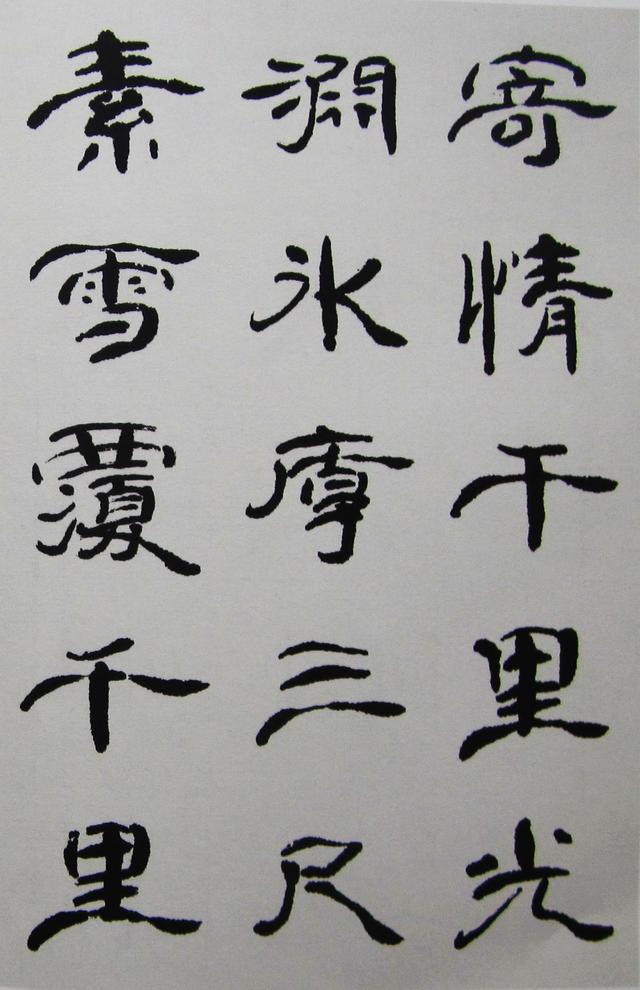 寄情千里光
淵冰厚三尺
素雪覆千里